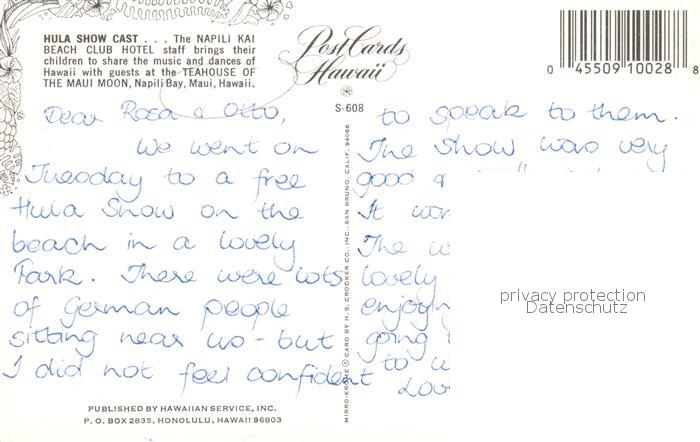 HULA SHOW CAST . . . The NAPILI KAI
BEACH CLUB HOTEL staff brings their
children to share the music and dances of
Hawaii with guests at the TEAHOUSE OF
THE MAUI MOON, Napili Bay, Maui, Hawaii.
Post Cards
Hawaii
S-608
0 45509 10028 8
Dear Rosa & Otto,
We went on
Tuesday to a free
Hula Show on the
beach in a lovely
Park. There were lots
of German people
sitting near us - but
I did not feel confident
to speak to them.
The show was very
good &
It
The
lovely
going
to
MIRRO-KROME ® CARD BY H. S. CROCKER CO., INC., SAN BRUNO, CALIF. 94066
PUBLISHED BY HAWAIIAN SERVICE, INC.
P. O. BOX 2835, HONOLULU, HAWAII 96803
privacy protection
Datenschutz